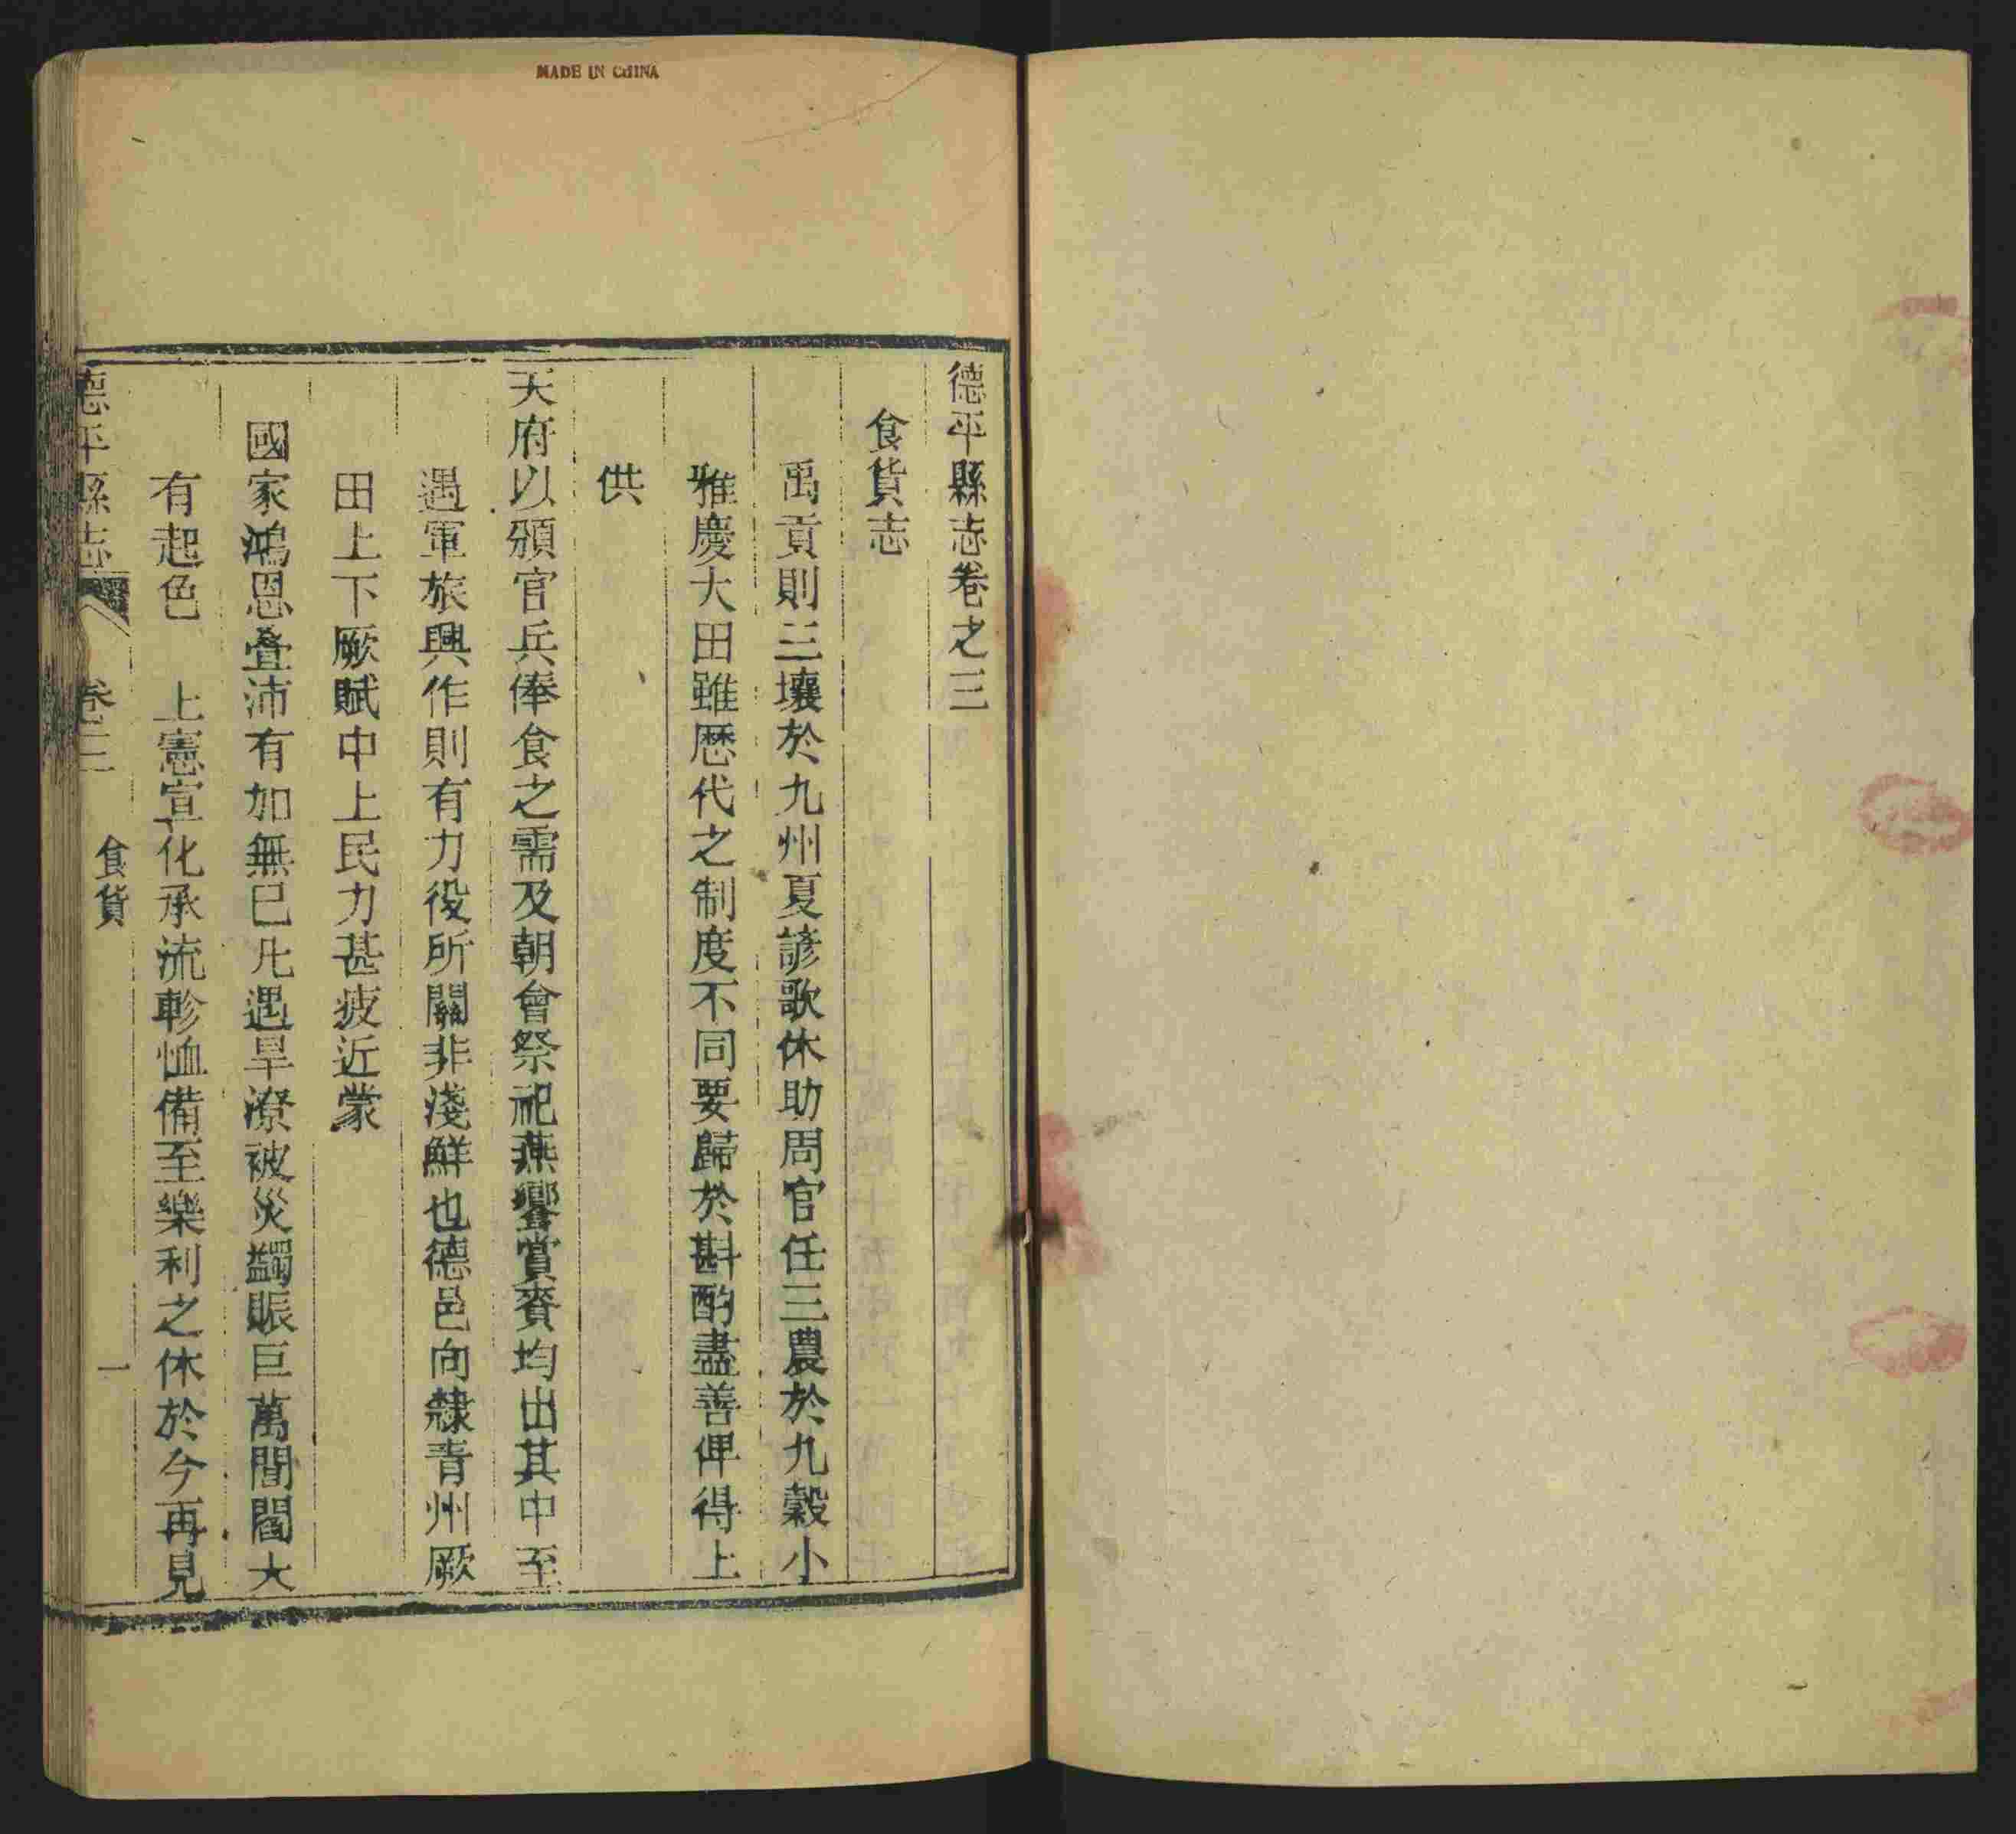 MADE IN CHINA
德平縣志卷之三
食貨志
禹貢則三壤於九州夏諺歌休助周官任三農於九穀小
雅慶大田雖歷代之制度不同要歸於斟酌盡善俾得上
供
天府以頒官兵俸食之需及朝會祭祀燕饗賞賚均出其中至
遇軍旅興作則有力役所關非淺鮮也德邑向隸青州厥
田上下厥賦中上民力甚疲近蒙
國家鴻恩叠沛有加無已凡遇旱潦被災蠲賑巨萬閭閻大
有起色 上憲宣化承流軫恤備至樂利之休於今再見
德平縣志 卷三 食貨 一